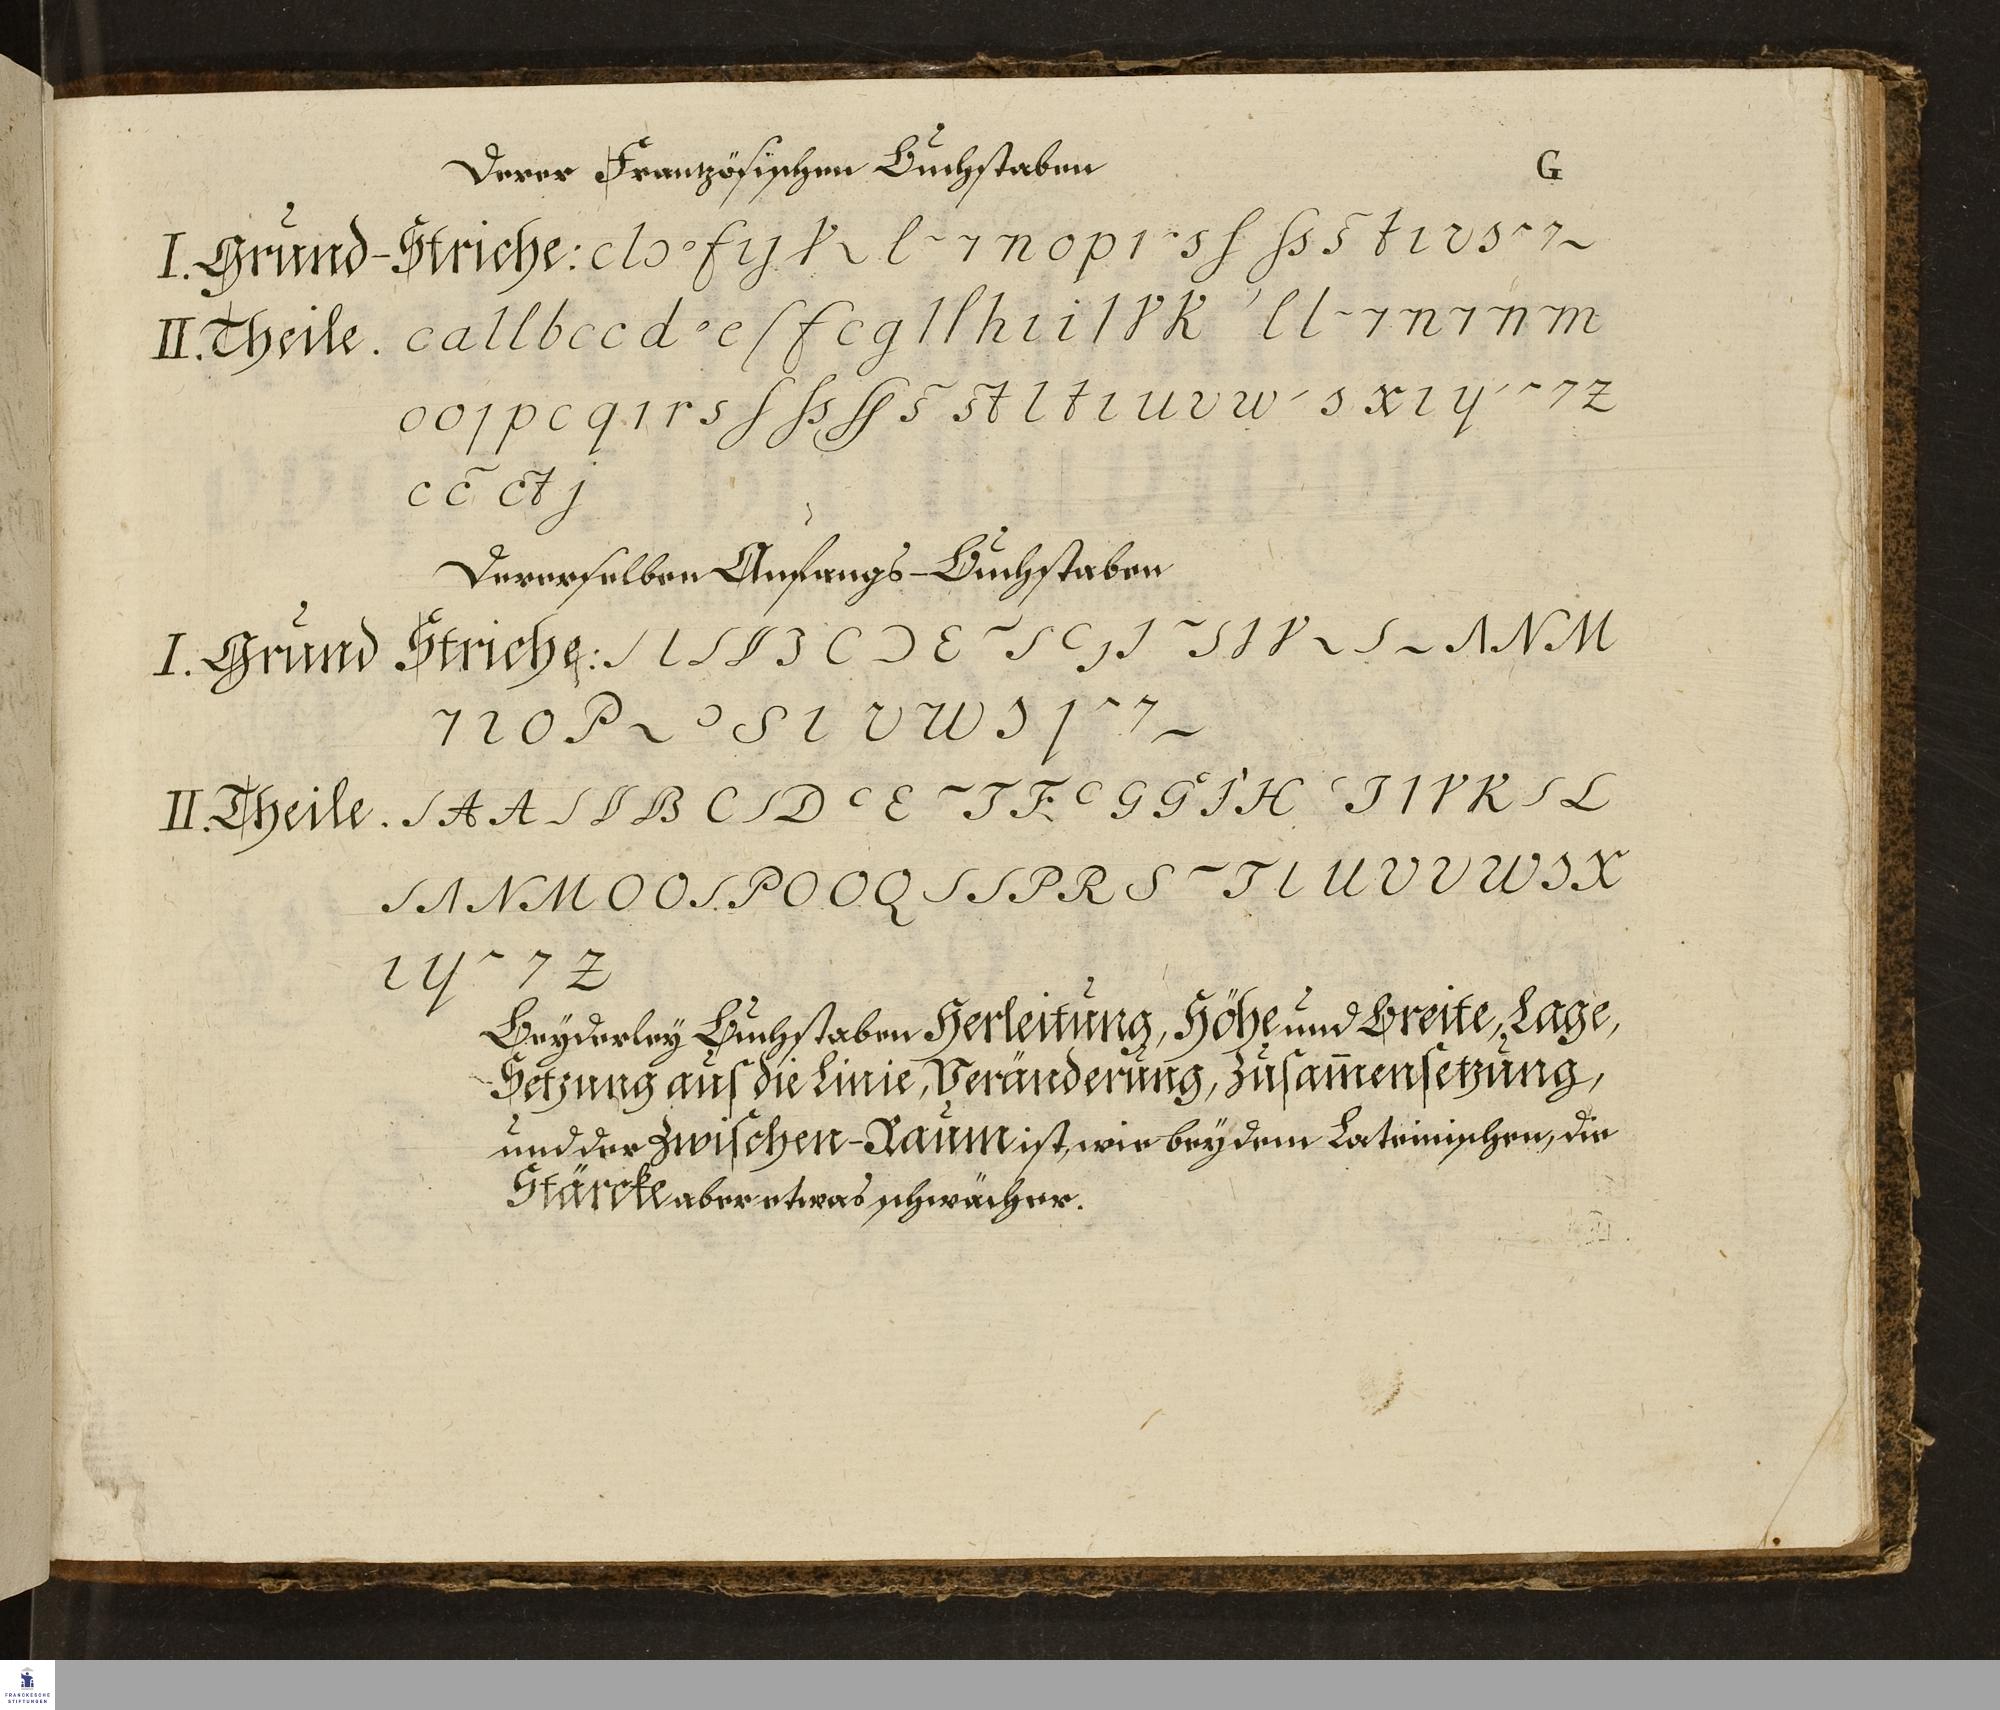 Derer Frantzösischen Buchstaben
G
I. Grund-Striche: c l ɔ o f ı j k ~ l ~ ı n o p ı s ſ ß s t ı v s ~ 7 ~
II. Theile. c a l l b c c d o e ſ f c g l l h ı i l k k l l ~ ı n ı n m
o o j p c q ı r s ſ ß ſſ s st l t ı u v w s x ı y ~ 7 z
c c ct j
Dererselben Anfangs-Buchstaben
I. Grund Striche: C E N M
O P S V W
II. Theile. A A B C D E T F G G H I K L
Λ N M O O P O O Q P R S T U V V W X
Y Z
Beyderley Buchstaben Herleitung, Höhe und Breite, Lage,
Setzung auf die Linie, Veränderung, Zusam̄ensetzung,
und der Zwischen-Raum ist, wie bey dem Lateinischen, die
Stärcke aber etwas schwächer.
FRANCKESCHE
STIFTUNGEN